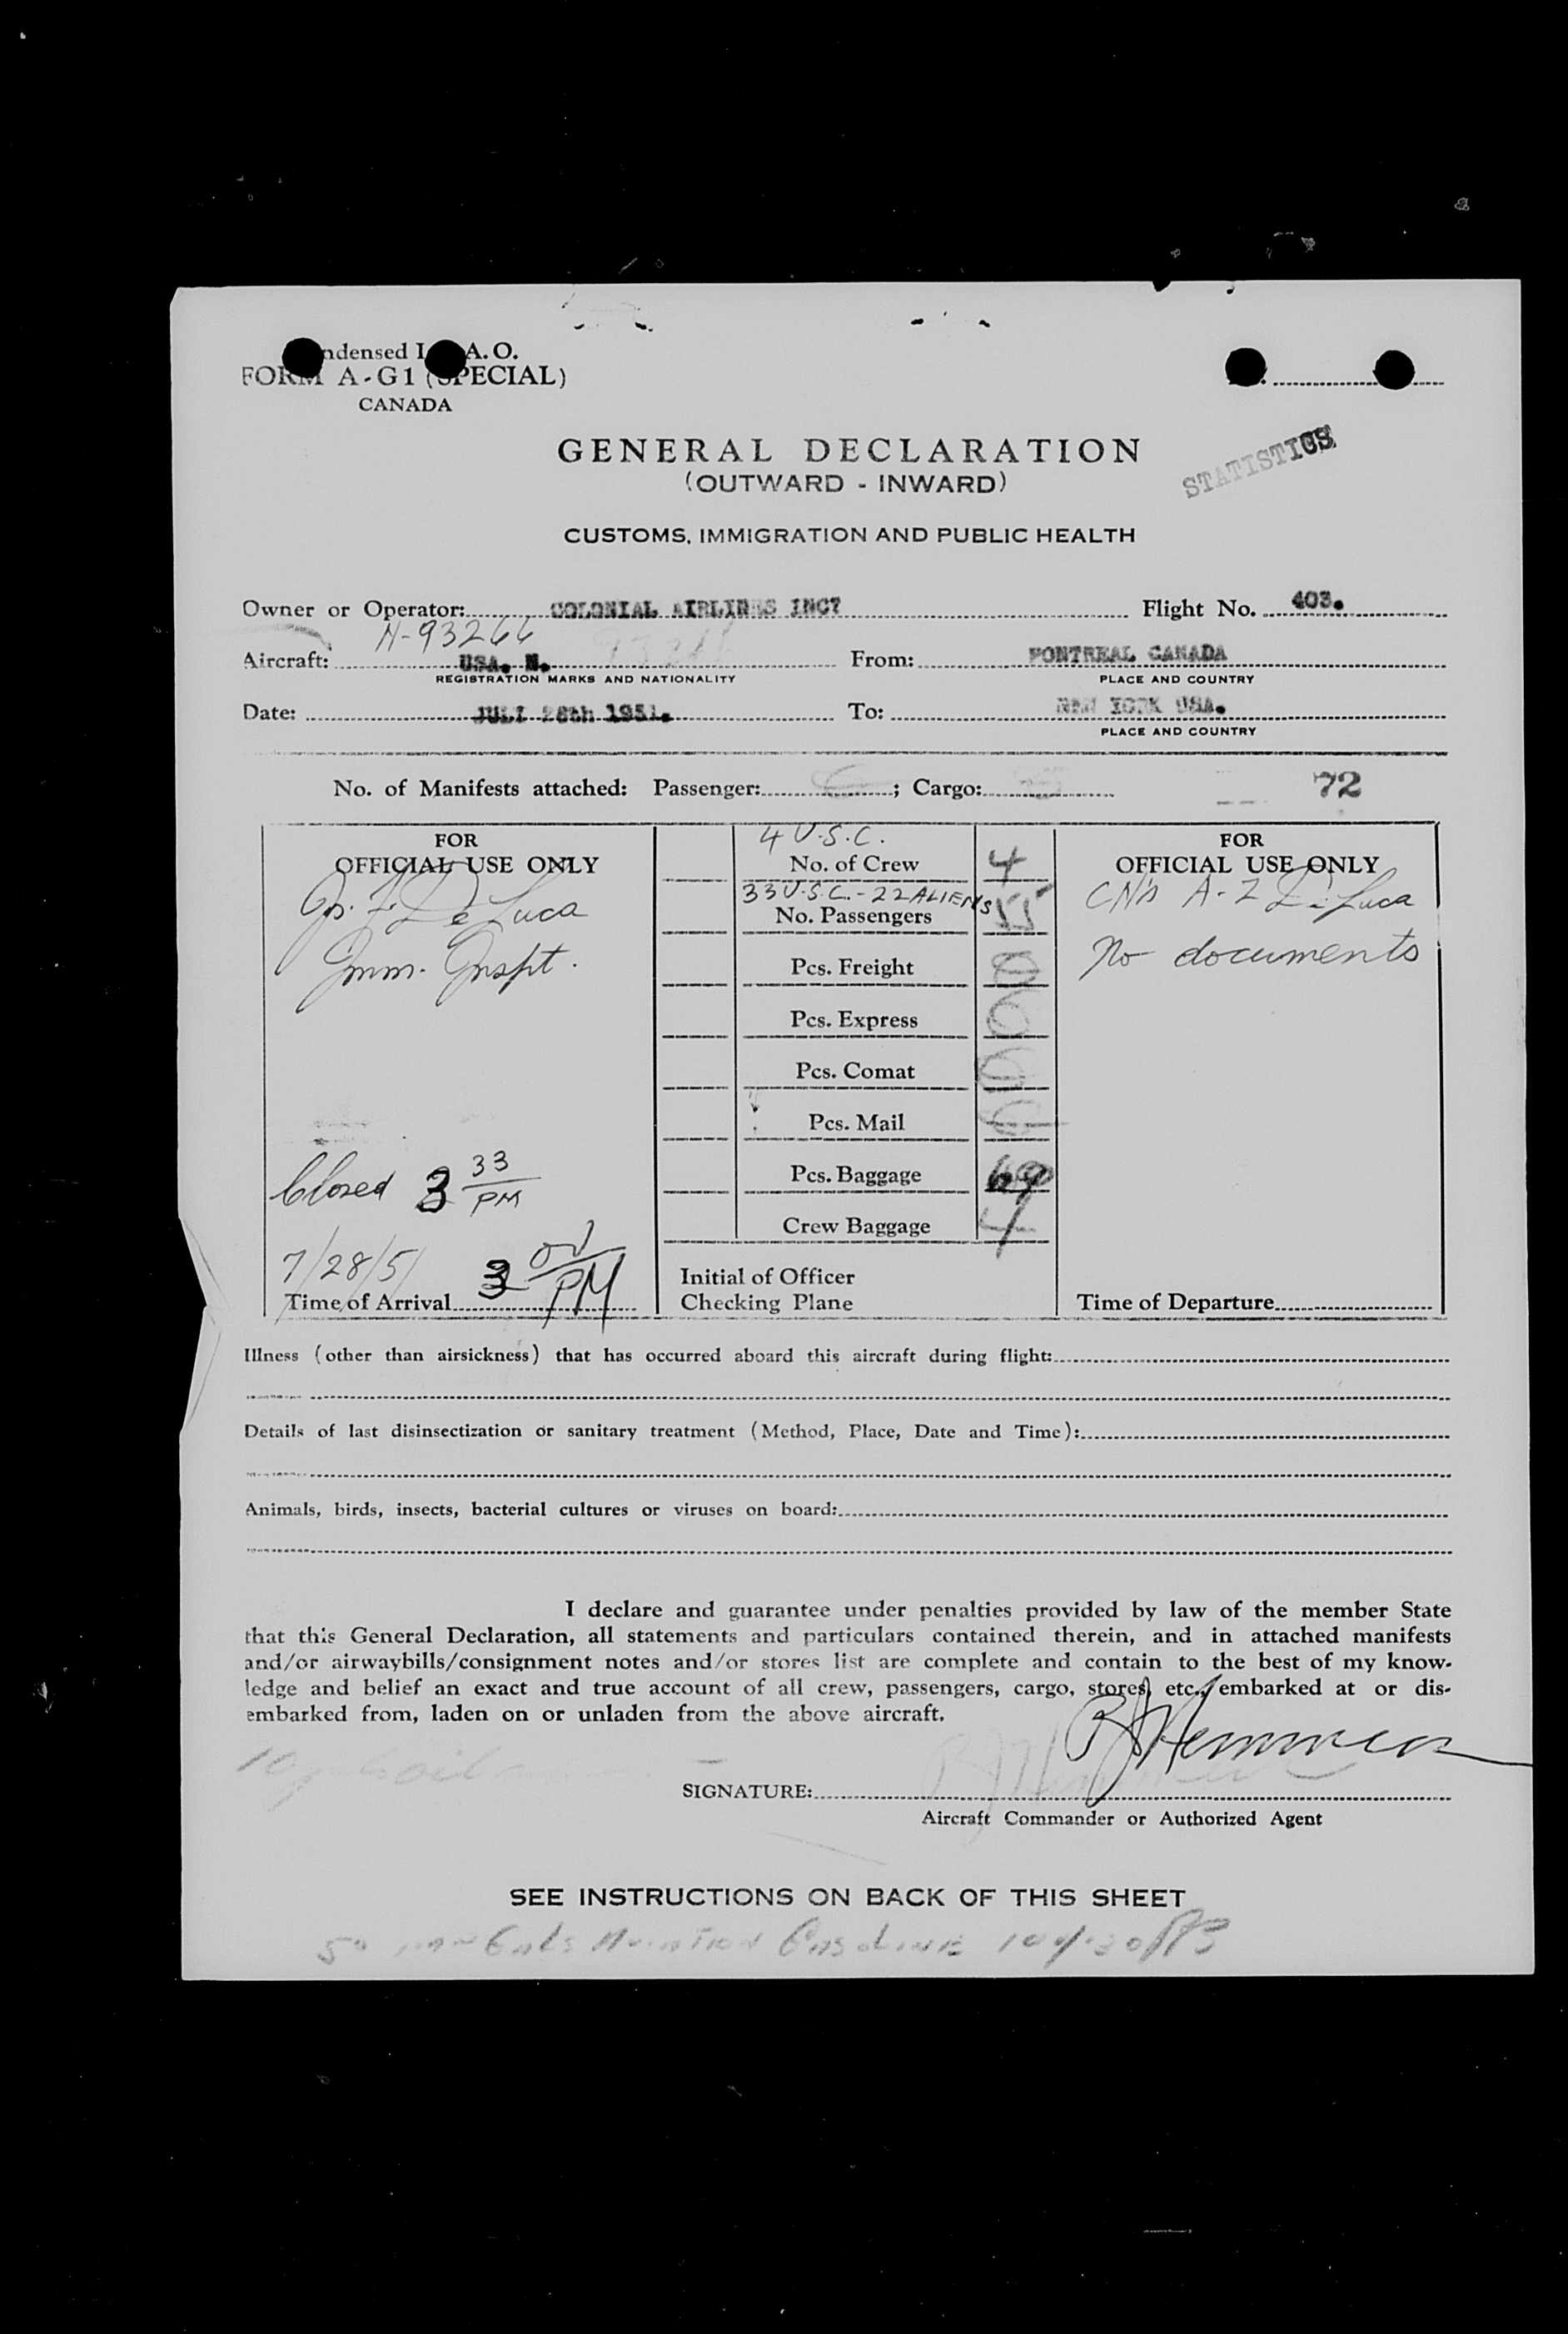 ndensed I A. O.
FORM A-G1 (SPECIAL)
CANADA
GENERAL DECLARATION
(OUTWARD - INWARD)
STATISTICS
CUSTOMS, IMMIGRATION AND PUBLIC HEALTH
Owner or Operator: COLONIAL AIRLINES INC? Flight No. 403.
N-93266
Aircraft: USA. N. From: MONTREAL CANADA
REGISTRATION MARKS AND NATIONALITY PLACE AND COUNTRY
Date: JULY 28th 1951. To: NEW YORK USA.
PLACE AND COUNTRY
No. of Manifests attached: Passenger: ; Cargo: 72
FOR
OFFICIAL USE ONLY
De Luca
Imm. Inspt.
Closed 3 33 PM
7/28/51 3 PM
Time of Arrival
4 U.S.C.
No. of Crew 4
33 U.S.C. - 22 ALIENS
No. Passengers 55
Pcs. Freight 0
Pcs. Express 0
Pcs. Comat 0
Pcs. Mail 0
Pcs. Baggage
Crew Baggage 4
Initial of Officer
Checking Plane
FOR
OFFICIAL USE ONLY
A-2 De Luca
No documents
Time of Departure
Illness (other than airsickness) that has occurred aboard this aircraft during flight:
Details of last disinsectization or sanitary treatment (Method, Place, Date and Time):
Animals, birds, insects, bacterial cultures or viruses on board:
I declare and guarantee under penalties provided by law of the member State
that this General Declaration, all statements and particulars contained therein, and in attached manifests
and/or airwaybills/consignment notes and/or stores list are complete and contain to the best of my know-
ledge and belief an exact and true account of all crew, passengers, cargo, stores, etc., embarked at or dis-
embarked from, laden on or unladen from the above aircraft.
SIGNATURE:
Aircraft Commander or Authorized Agent
SEE INSTRUCTIONS ON BACK OF THIS SHEET
Gals Aviation Gasoline